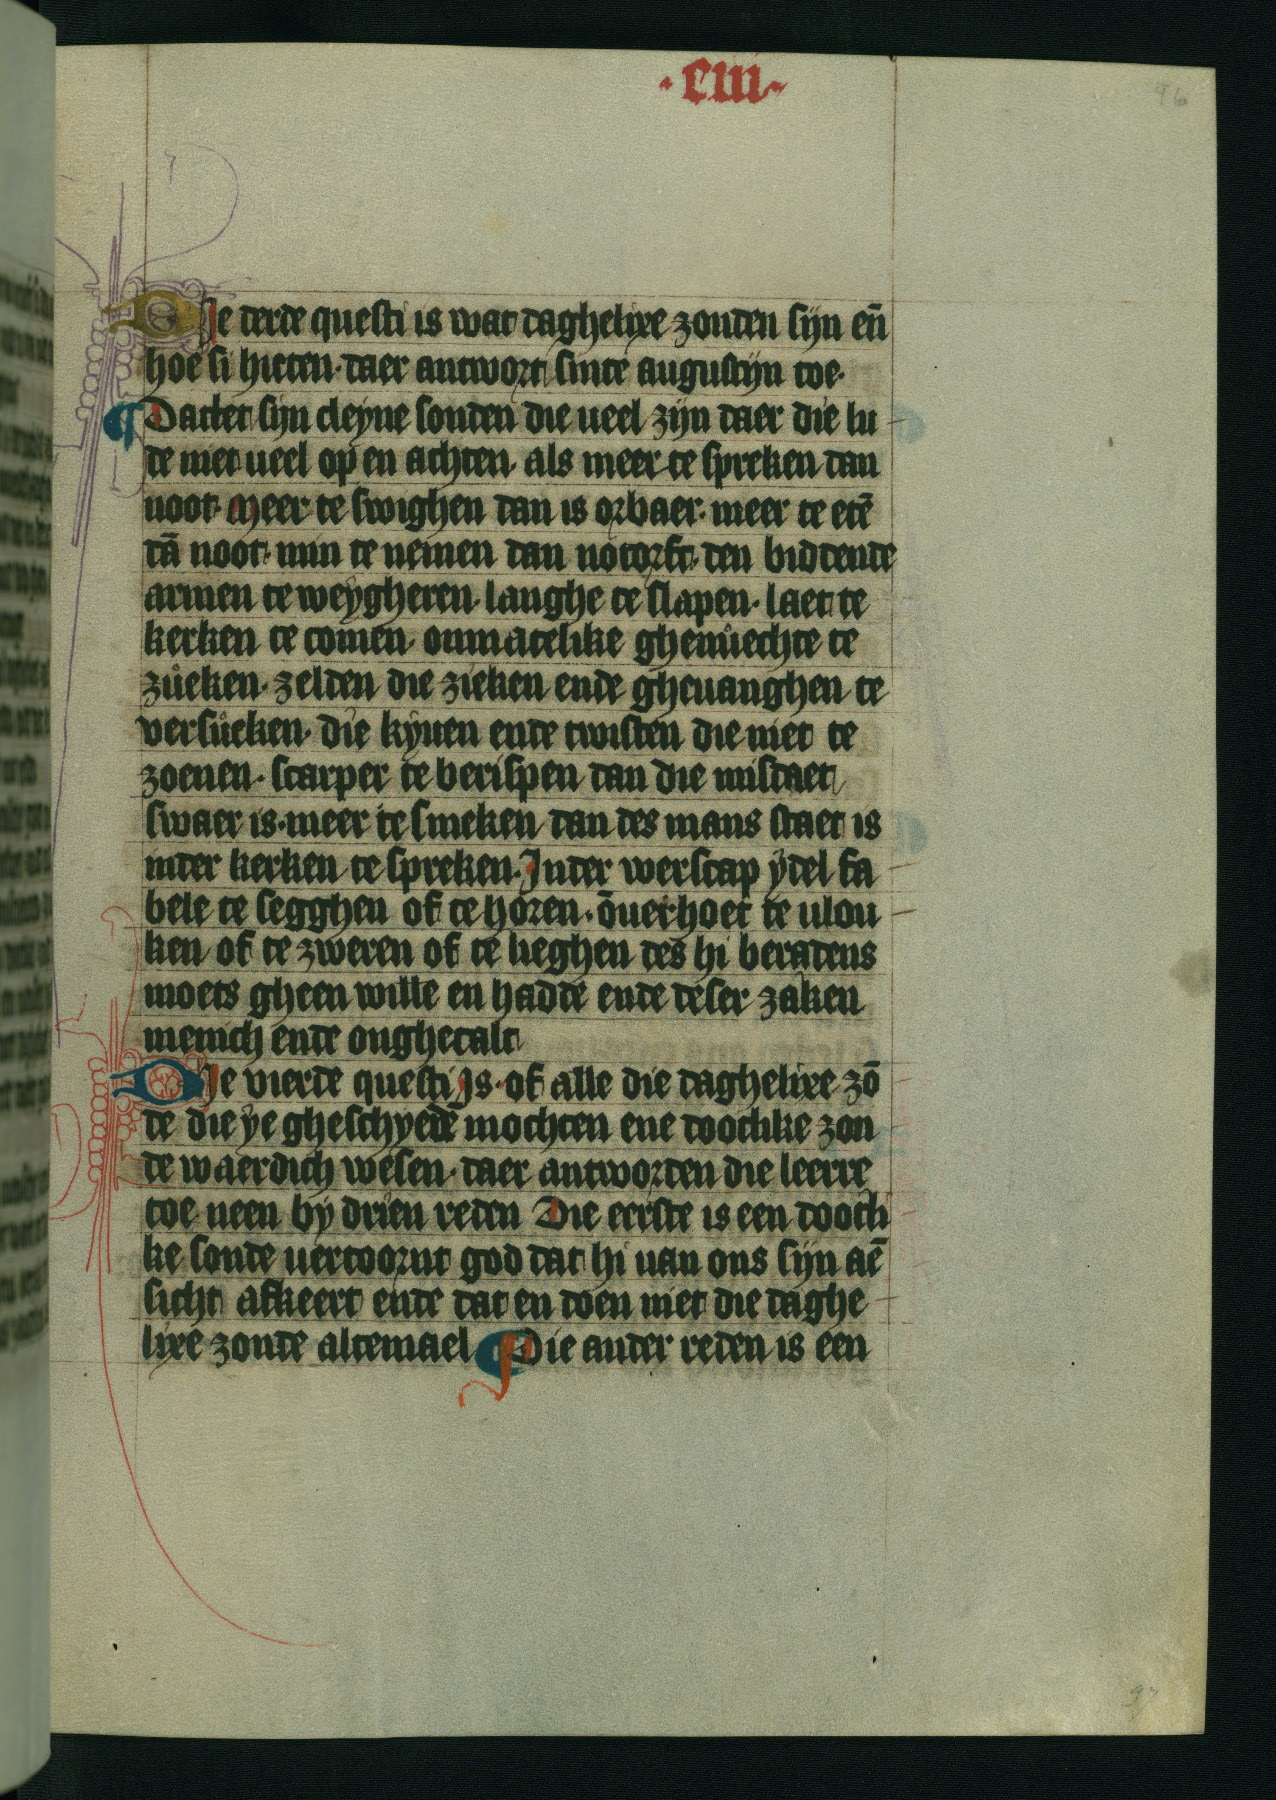 ·ciii·
96
Die derde questi is wat daghelixe zonden sijn en̄
hoe si hieten· daer antwort sinte augustijn toe·
¶ Dattet sijn cleyne sonden die ueel zijn daer die lu
de niet ueel op en achten· als meer te spreken dan
noot· Meer te swighen dan is orbaer· meer te etē
dā noot· min te nemen dan notorft· den biddende
armen te weygheren· langhe te slapen· laet te
kerken te comen· onmatelike ghenuͦechte te
zuͦeken· zelden die zieken ende gheuanghen te
versuͦeken· die kyuen ende twisten die niet te
zoenen· scarper te berispen dan die misdaet
swaer is· meer te smeken dan des mans staet is
inder kerken te spreken· Inder werscap ydel fa
bele te segghen of te horen· ōuerhoet te ulou
ken of te zweren of te lieghen des hi beradens
moets gheen wille en hadde ende deser zaken
menich ende onghetalt
Die vierde questi Is· of alle die daghelixe zō
de die ye gheschyedē mochten ene dootlike zon
de waerdich wesen· daer antworden die leerre
toe neen by drien reden Die eerste is een dootli
ke sonde uertoornt god dat hi uan ons sijn aē
sicht afkeert ende dat en doen niet die daghe
lixe zonde altemael ¶ Die ander reden is een
97